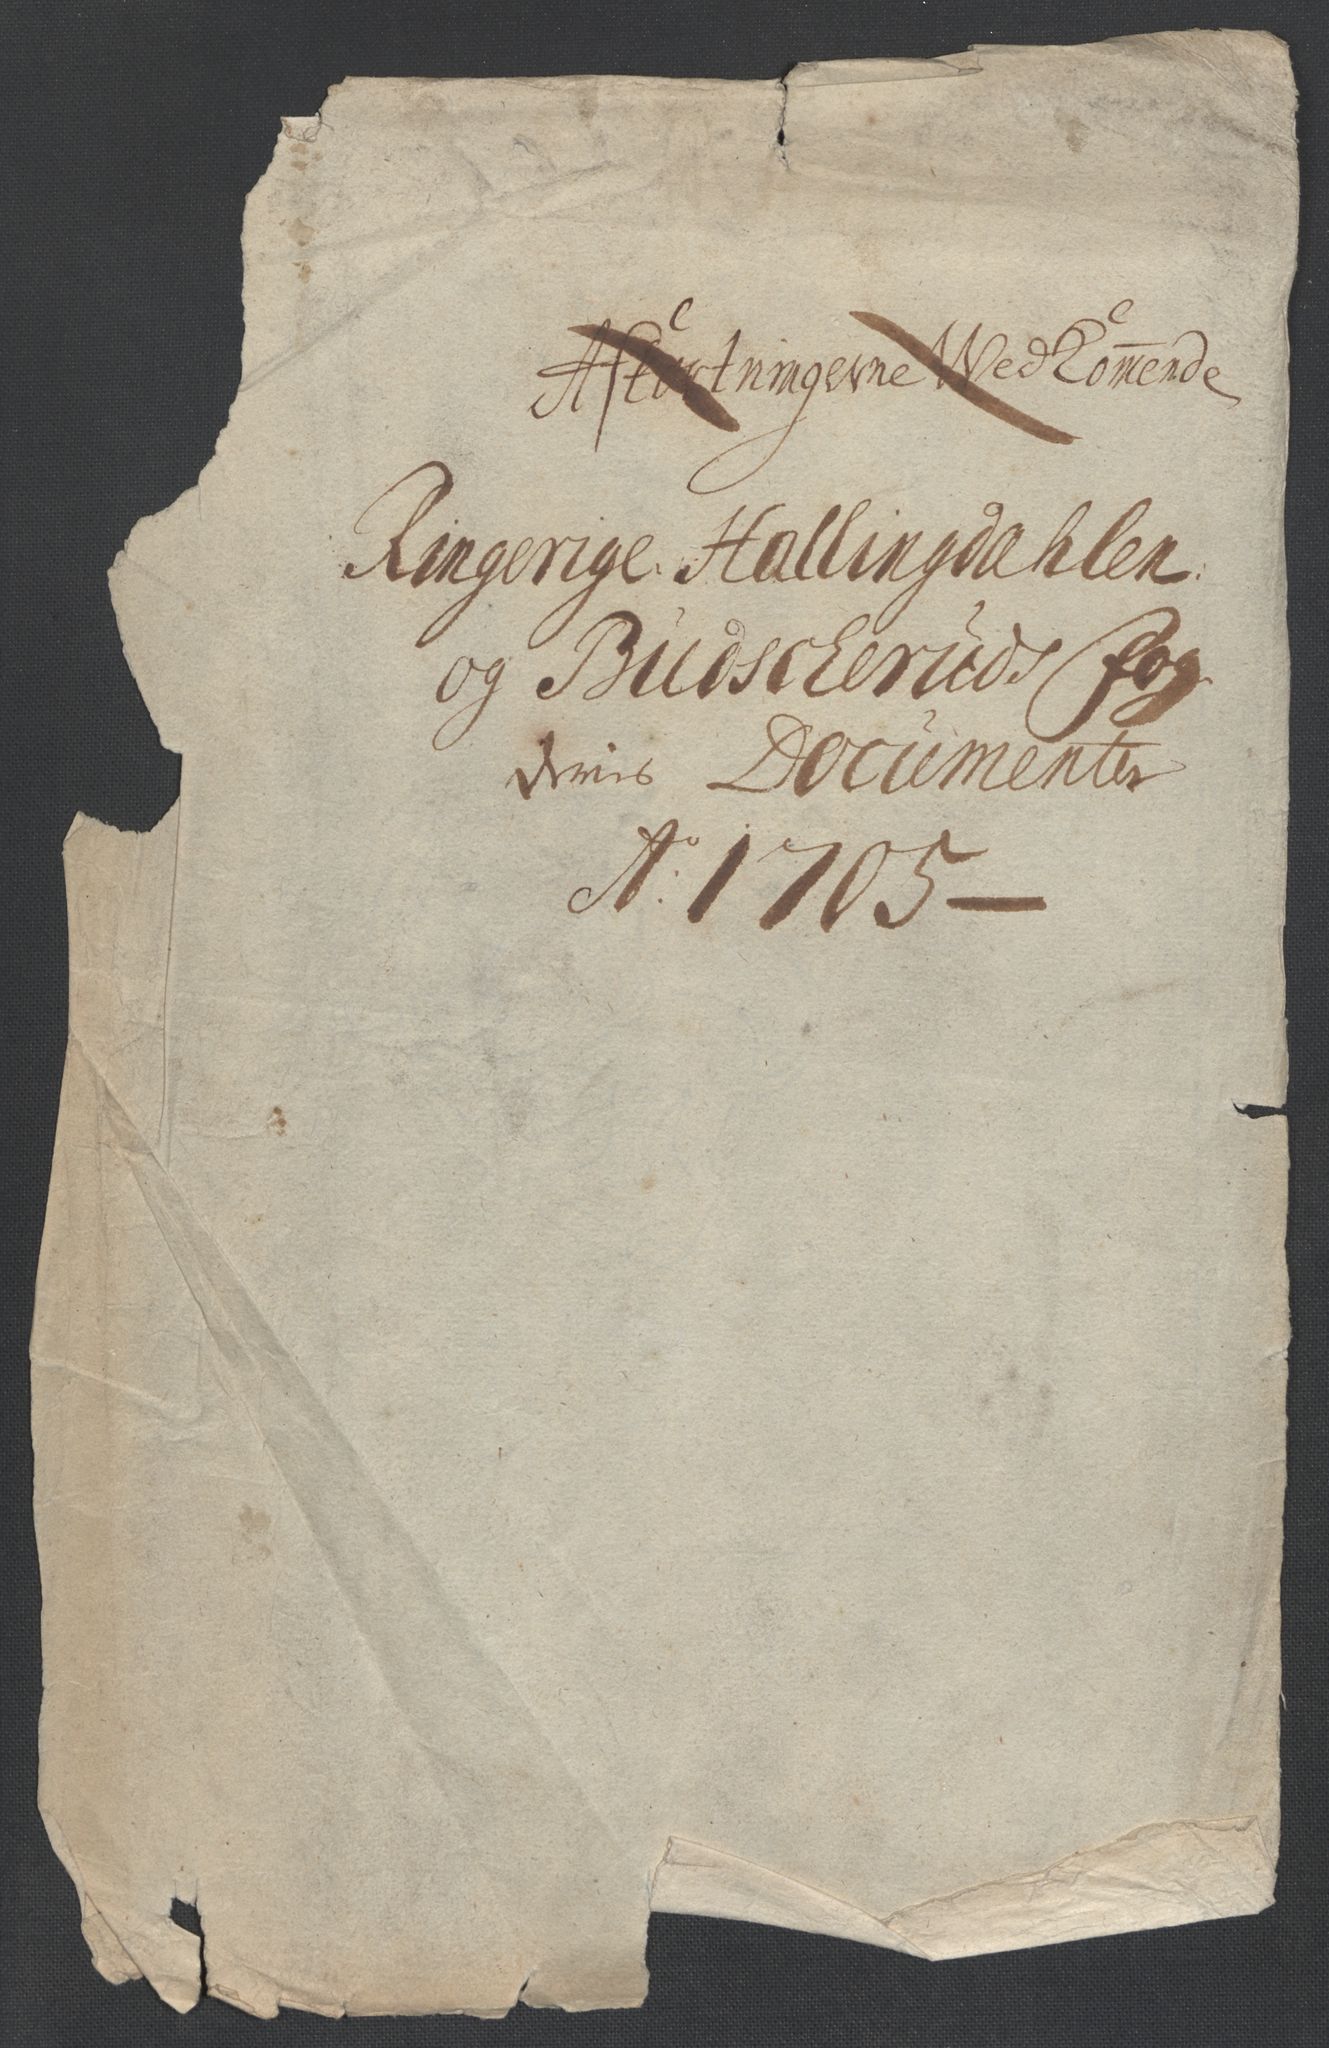 Afkortningerne Wedkom̄ende
Ringerige. Hallingdahlen.
og Budscheruds fog
deris Documenter
A:o 1705 —